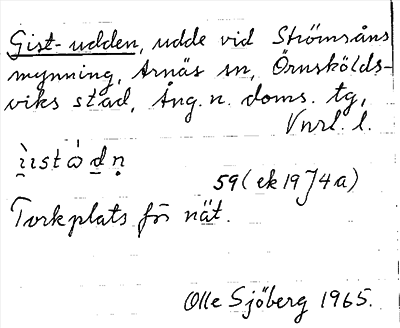 Gist-udden, udde vid Strömsåns
mynning, Arnäs sn, Örnskölds-
viks stad, Ång. n. doms. tg,
Vnrl. l.
59 (ek 19 J4a)
Torkplats för nät.
Olle Sjöberg 1965.